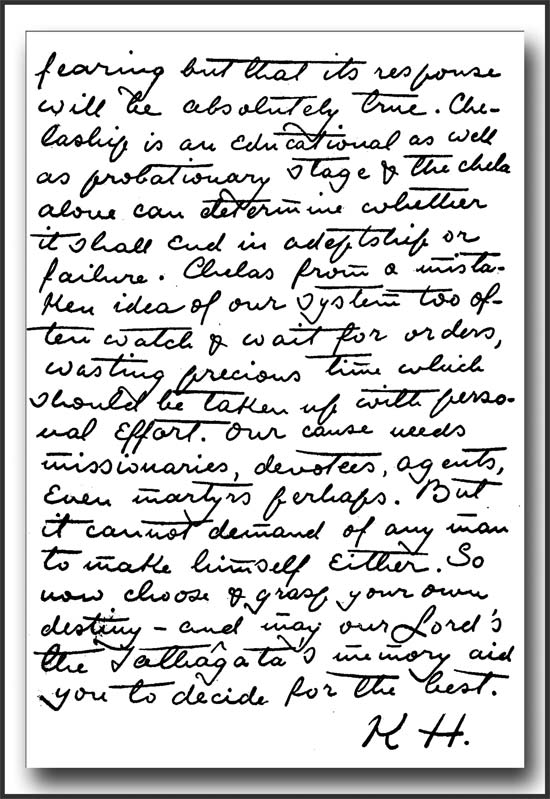 fearing but that its response
will be absolutely true. Che-
laship is an educational as well
as probationary stage & the chela
alone can determine whether
it shall end in adeptship or
failure. Chelas from a mista-
ken idea of our system too of-
ten watch & wait for orders,
wasting precious time which
should be taken up with perso-
nal effort. Our cause needs
missionaries, devotees, agents,
even martyrs perhaps. But
it cannot demand of any man
to make himself either. So
now choose & grasp your own
destiny - and may our Lord's
the Tathâgata's memory aid
you to decide for the best.
K H.